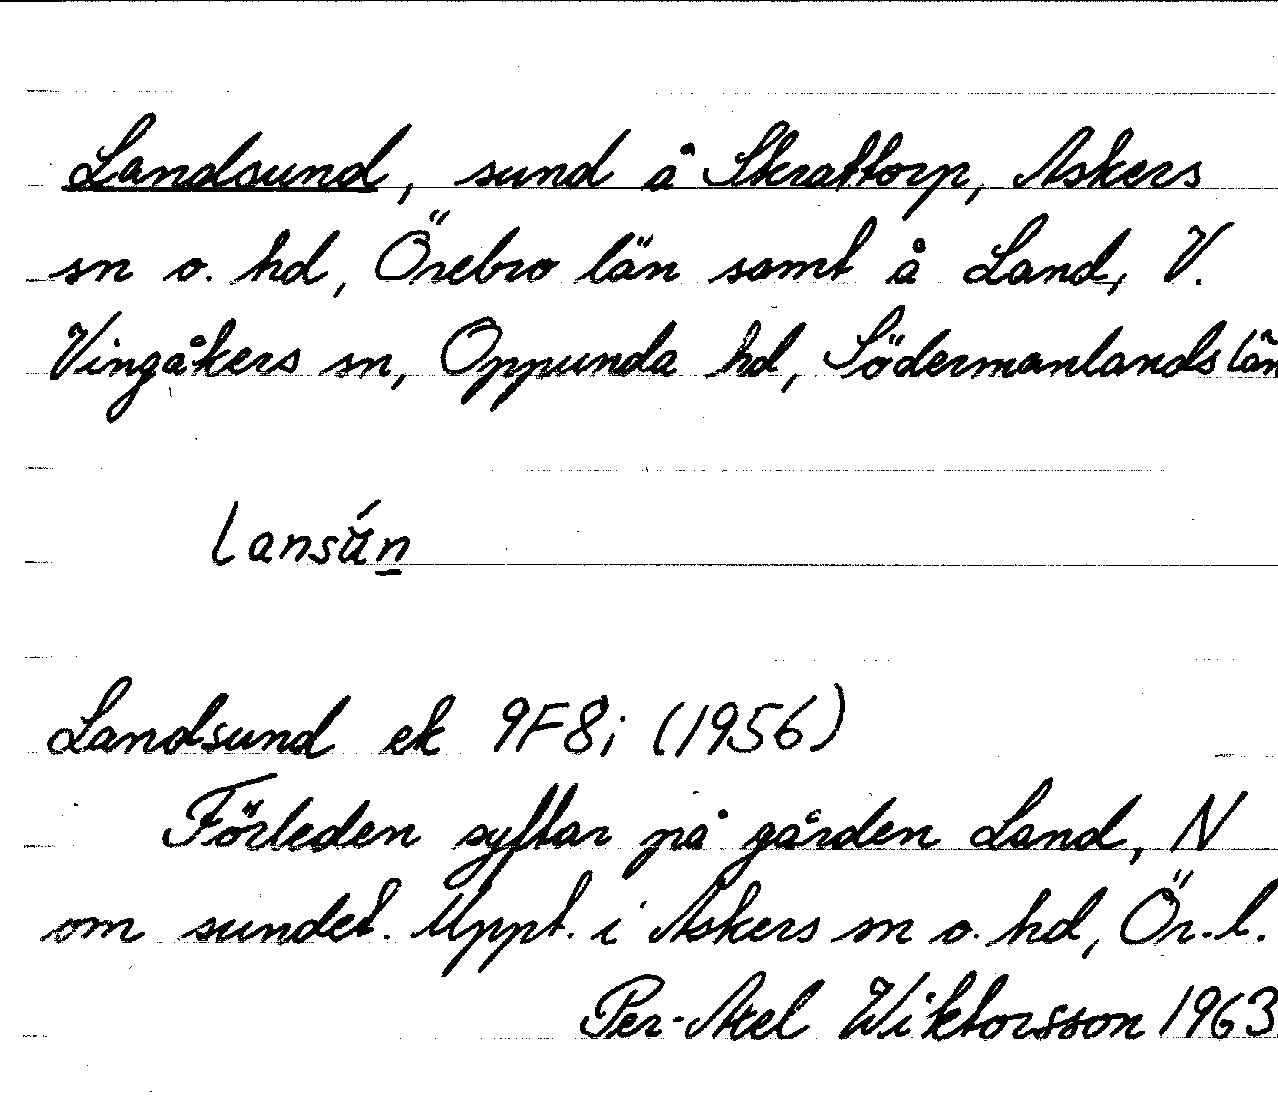 Landsund, sund å Skrattorp, Askers
sn o. hd, Örebro län samt å Land, V.
Vingåkers sn, Oppunda hd, Södermanlands län
lansún
Landsund ek 9F8i (1956)
Förleden syftar på gården Land, N
om sundet. Uppt. i Askers sn o. hd, Ör. l.
Per-Axel Wiktorsson 1963